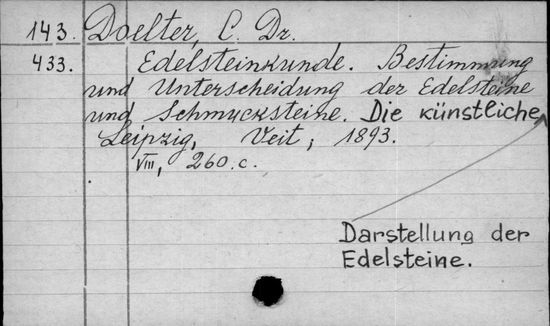 143. Doelter, C. Dr.
433. Edelsteinkunde. Bestimmung
und Unterscheidung der Edelsteine
und Schmucksteine. Die künstliche
Leipzig, Veit, 1893.
VIII, 260.c.
Darstellung der
Edelsteine.